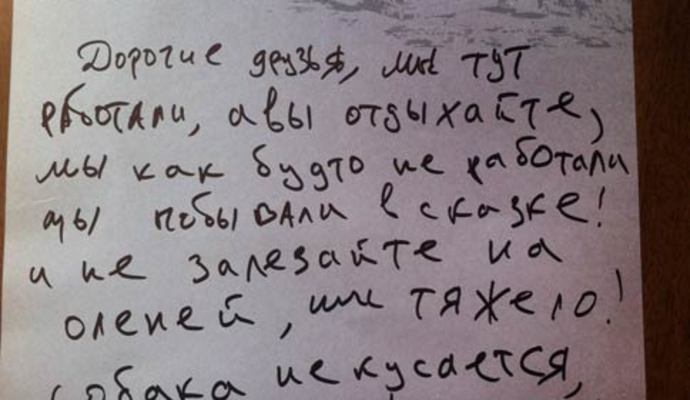 Дорогие друзья, мы тут
работали, а вы отдыхайте,
мы как будто не работали
мы побывали в сказке!
и не залезайте на
оленей, им тяжело!
собака не кусается,